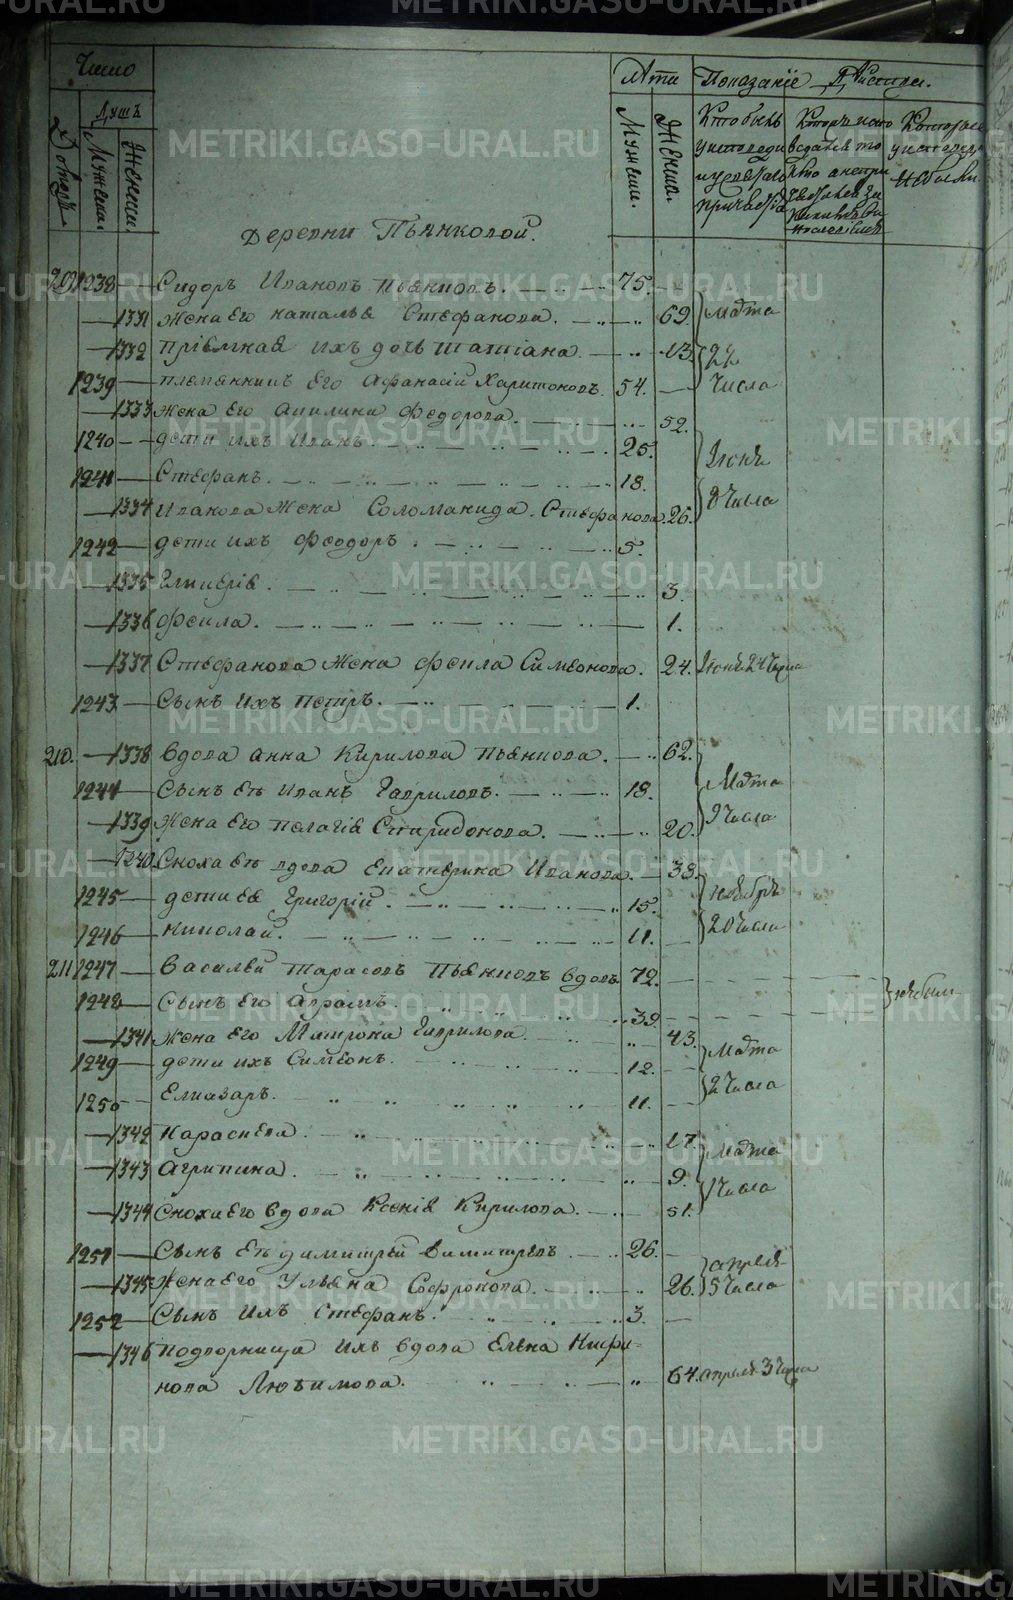 Число
Лѣта
Показанiе Дѣйствы.
Душъ
Дворы
Мужеска.
Женска
Мужеска.
Женска.
Кто былъ
у исповеди
и у святаго
причастiя
Которые исповедались то
кто а не при
Которые
у исповеди
не были.
Деревни Пьянковой.
209 1238 — Сидоръ Ивановъ Пьянковъ. 75.
1331 Жена его наталья Стефанова. 69. марта
1332 Прiемная ихъ дочь Татiана. 13. 22
1239 — племянникъ Его Афанасiй Харитоновъ 54. Числа
1333 Жена Его Акилина Федорова. 52.
1240 — дети ихъ Иванъ. 25. Iюня
1241 — Стефанъ. 18.
1334 Иванова Жена Соломанида Стефанова. 26. 8 Числа
1242 — дети ихъ Феодоръ. 5.
1335 Гликерiя. 3.
1336 Фекла. 1.
1337 Стефанова Жена Фекла Симеонова. 24. Iюня 24 Числа
1243 — Сынъ Ихъ Петръ. 1.
210. 1338 Вдова анна Кирилова Пьянкова. 62.
1244 — Сынъ Ея Иванъ Гавриловъ. 18. Марта
1339 Жена Его пелагiя Спиридонова. 20. 9 Числа
1340 Сноха Ея вдова Екатерина Иванова. 38.
1245 — дети ея Григорiй. 15. ноября
1246 — николай. 11. 20 Числа
211 1247 — Василей Тарасовъ Пьянковъ вдовъ 72. небыли
1248 — Сынъ Его Аврамъ. 39.
1341 Жена Его Матрона Гаврилова. 43. Марта
1249 — дети ихъ Симеонъ. 12.
1250 — Елиазаръ. 11. 2 Числа
1342 Параскева. 17. Марта
1343 Агрипина. 9. Числа
1344 Сноха Его вдова Ксенiя Кирилова. 51.
1251 — Сынъ Ея димитрей димитрiевъ 26. апреля
1345 Жена Его Ульяна Софронова. 26. 5 Числа
1252 — Сынъ Ихъ Стефанъ. 3.
1346 Подворница Ихъ вдова Елена
нова Любимова. 64. апреля 3 Числа
METRIKI.GASO-URAL.RU